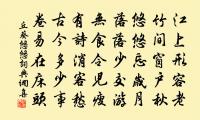 江上形容老
竹間窗戶
悠悠忘歲月
落落少交遊
無食令兒瘦
有詩消客愁
古今多少事
卷易在床頭
丘葵悠悠詞典